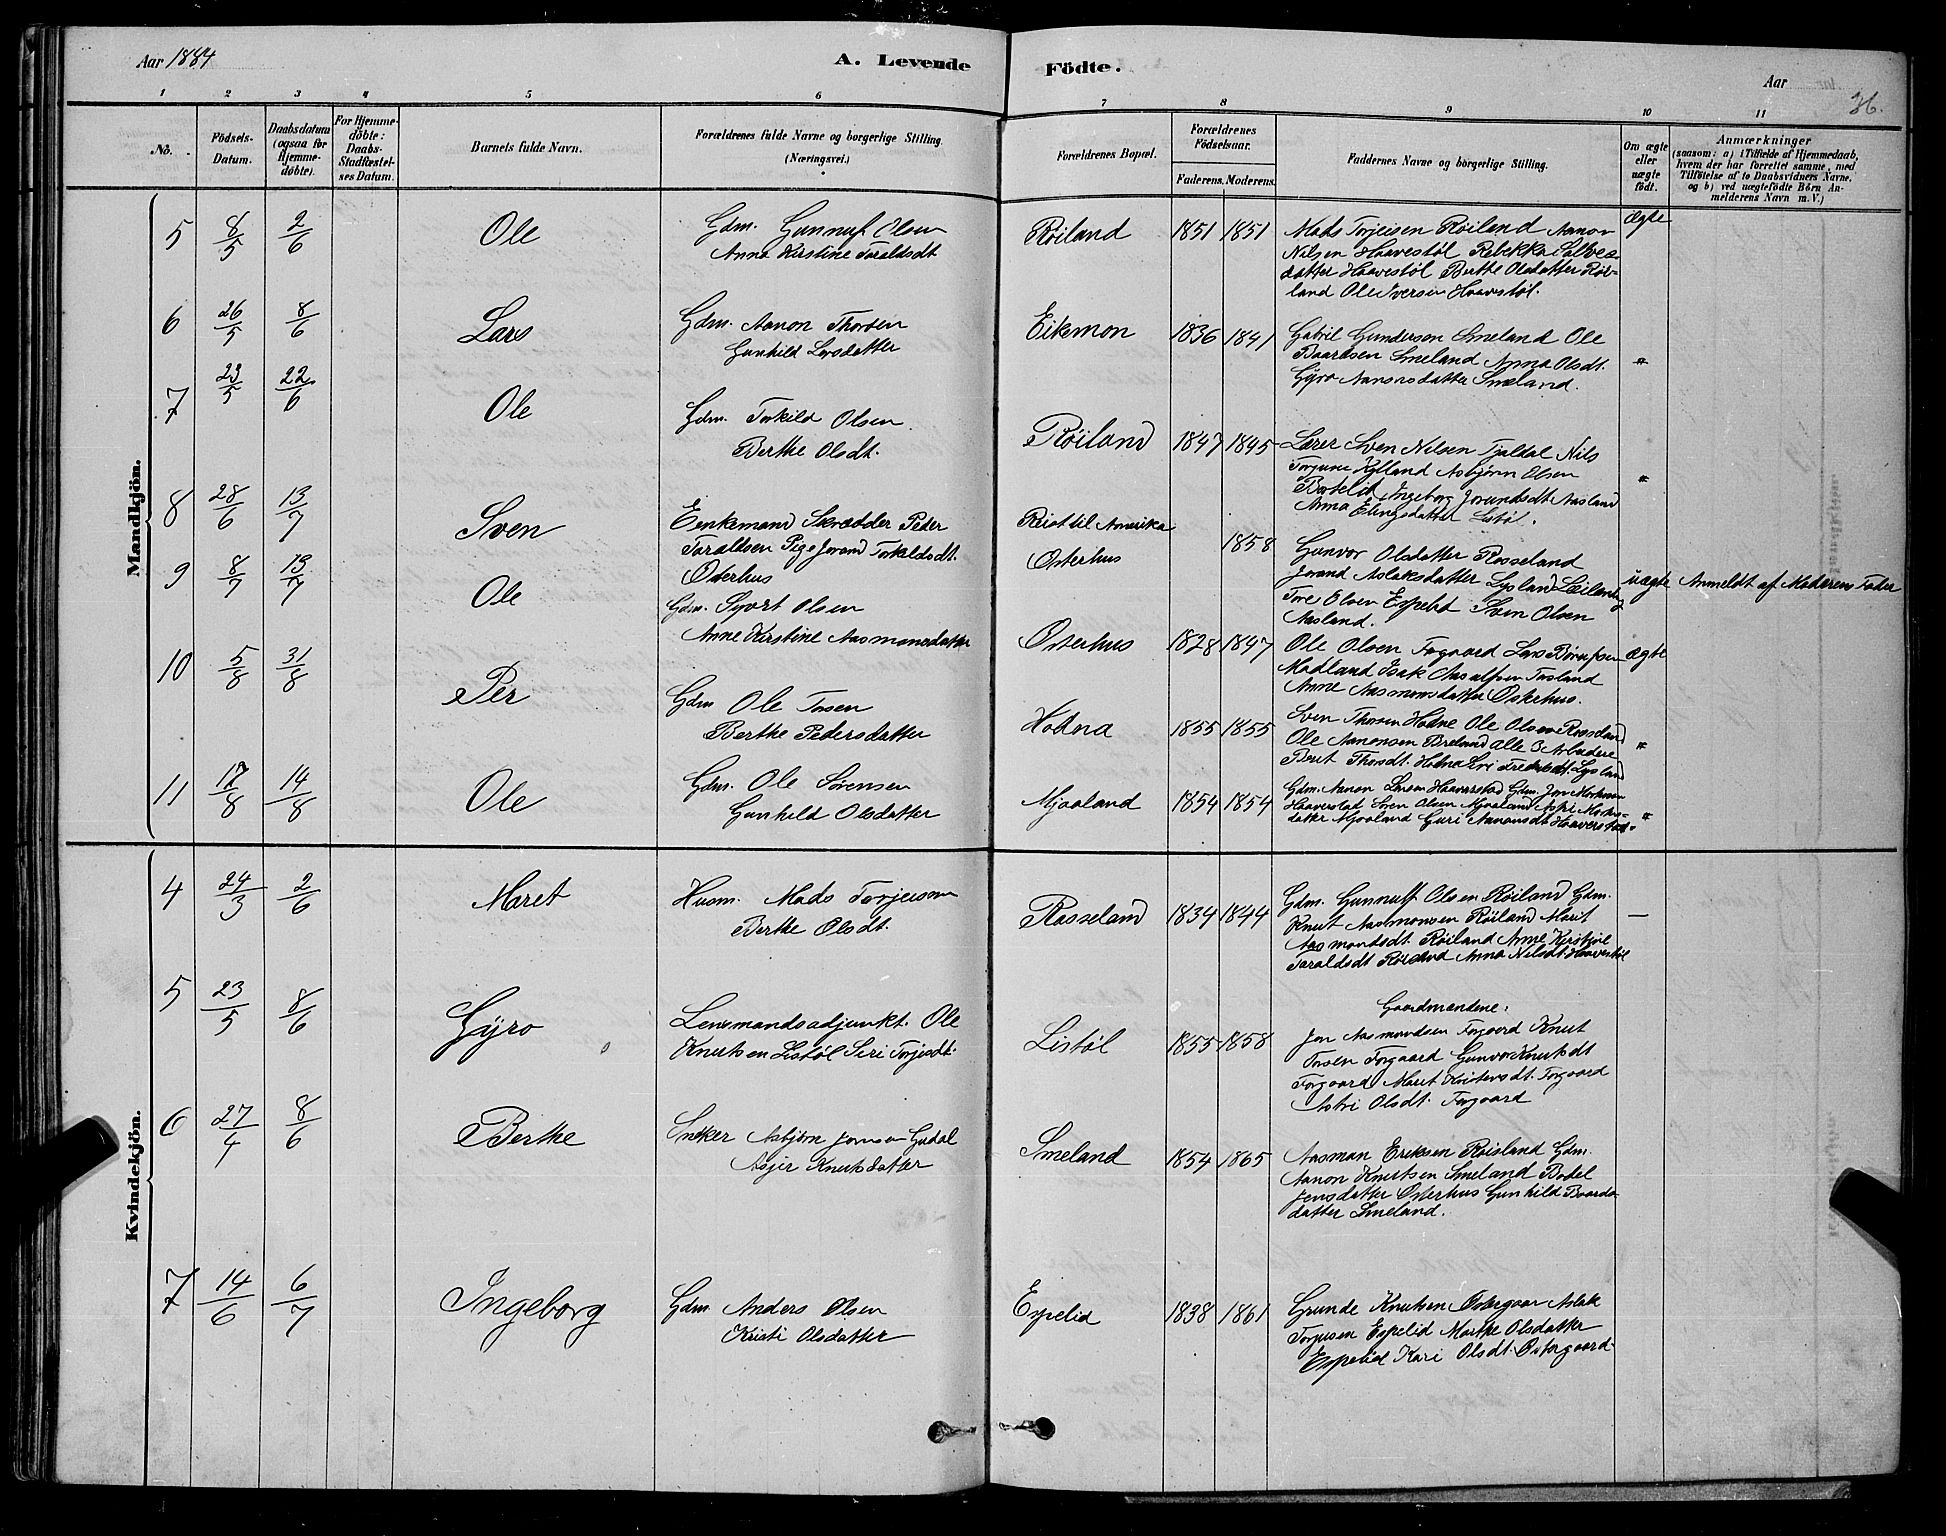 Aar 1884
A. Levende
Födte.
Aar
36.
1 2 3 4 5 6 7 8 9 10 11
No.
Födsels-Datum.
Daabsdatum (ogsaa for Hjemme-döbte).
For Hjemme-döbte: Daabs-Stadfæstel-ses Datum.
Barnets fulde Navn.
Forældrenes fulde Navne og borgerlige Stilling. (Næringsvei.)
Forældrenes Bopæl.
Forældrenes Födselsaar.
Faderens. Moderens.
Faddernes Navne og borgerlige Stilling.
Om ægte eller uægte födt.
Anmærkninger
(saasom: a) i Tilfælde af Hjemmedaab,
hvem der har forrettet samme, med
Tilföielse af to Daabsvidners Navne.
og b) ved uægtefödte Börn An-
melderens Navn m. V.)
Mandkjön.
5 8/5 2/6 Ole
Gdm. Gunnuf Olsen
Anna Kirstine Taraldsdt
Røiland 1851 1851
Mads Torjeisen Røiland Aanon
Nilsen Haavestøl Rebekka Salves
datter Haavestøl Berthe Olsdatter Røi-
land Ole Iversen Haavestøl.
ægte
6 26/5 8/6 Lars
Gdm. Aanon Thorsen
Gunhild Larsdatter
Eikemon 1836 1841
Gabriel Gunderson Smeland Ole
Baardsen Smeland Anna Olsdt.
Gyro Aanonsdatter Smeland.
"
7 23/5 22/6 Ole
Gdm. Torkild Olsen
Berthe Olsdt.
Røiland 1847 1845
Lærer Sven Nilsen Tjaldal Nils
Torjusen Kylland Asbjørn Olsen
Ingeborg Jorundsdt Aasland
Anna Elingsdatter Listøl.
"
8 28/6 13/7 Sven
Enkemand Skrædder Peder
Taraldsen Pige Jorand Torkildsdt.
Osterhus
Reist til Amerika
Osterhus
1858
Gunvor Olsdatter Rosseland
Jorand Aslaksdatter Lysland
Tore Olsen Espelid Sven Olsen
Aasland.
uægte Anmeldt af Moderens Fader
9 8/7 13/7 Ole
Gdm. Syvert Olsen
Anne Kirstine Aasmonsdatter
Osterhus 1828 1847
Ole Olsen Fogaard Lars
Madland Isak
Anne Aasmonsdatter Osterhus.
ægte
10 5/8 31/8 Per
Gdm Ole Torsen
Berthe Pedersdatter
Hodna 1855 1855
Sven Thorsen Hodne Ole Olsen Rosseland
Ole Aanonsen Breland alle 3 Arbeidere
Berit Thorsdt. Hodna Siri Fredriksdt. Lysland
"
11 17/8 14/8 Ole
Gdm. Ole Sørensen
Gunhild Olsdatter
Mjaaland 1854 1854
Gdm. Aanon Larsen Haaverstad Gdm. Jon
Haaverstad Søren Olsen Mjaaland
datter Mjaaland Guri Aanonsdt Haaverstad.
"
Kvindekjön.
4 24/3 2/6 Maret
Husm. Mads Torjeisen
Berthe Olsdt.
Rosseland 1834 1844
Gdm. Gunnulf Olsen Røiland Gdm.
Knut Aasmonsen Røiland Marit
Aasmondsdt. Røiland Anne Kirstine
Taraldsdt Røiland Anna Nilsdt. Haavestøl
—
5 23/5 8/6 Gyro
Lensmandsadjunkt. Ole
Knutsen Listøl Siri Torjesdt.
Listøl 1855 1858
Gaardmandene:
Jon Aasmondsen Forgaard Knut
Torsen Forgaard Gunvor Knutsdt
Forgaard Maret Kristensdt. Forgaard
Astri Olsdt. Forgaard
6 27/4 8/6 Berthe
Snekker Asbjørn Jonsen Godal
Asjer Knutsdatter
Smeland 1854 1865
Aasman Eriksen Røisland Gdm.
Aanon Knutsen Smeland Bodel
Jensdatter Osterhus Gunhild Baards-
datter Smeland.
7 14/6 6/7 Ingeborg
Gdm Anders Olsen
Kristi Olsdatter
Espelid 1838 1861
Grunde Knutsen Ostergaar Aslak
Torjusen Espelid Marthe Olsdatter
Espelid Kari Olsdt. Ostergaard